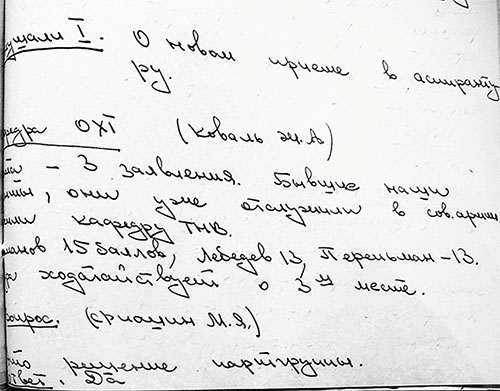 ушали I. О новом приеме в аспиранту
ру.
федра ОХТ (Коваль Ж.А)
та – 3 заявления. Бывшие наши
, они уже отслужили в сов.армии
кафедру ТНВ.
манов 15 баллов, Лебедев 13, Перельман – 13.
ра ходатайствует о 3-м месте.
опрос. (Фиошин М.Я.)
то решение партгруппы.
твет. Да